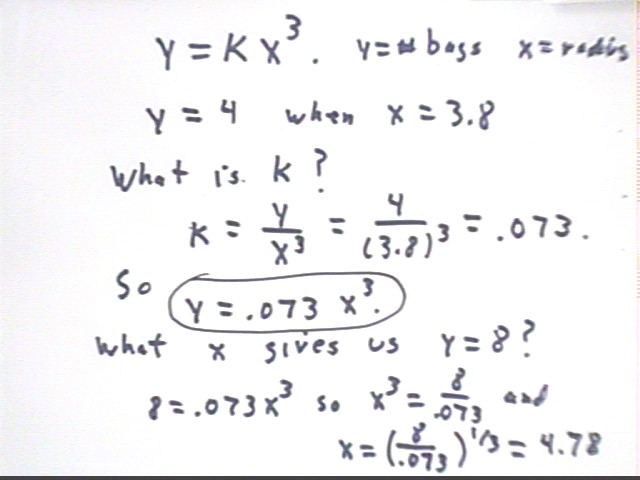 y = K x³. y = # bags x = radius
y = 4 when x = 3.8
What is k?
K = y/x³ = 4/(3.8)³ = .073.
So
y = .073 x³.
what x gives us y = 8?
8 = .073x³ so x³ = 8/.073 and
x = (8/.073)^1/3 = 4.78